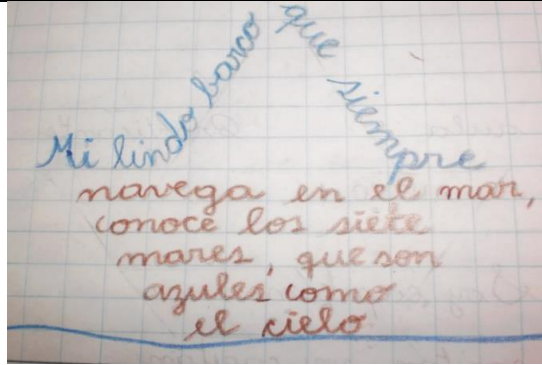 Mi lindo barco
que siempre
navega en el mar,
conoce los siete
mares, que son
azules como
el cielo